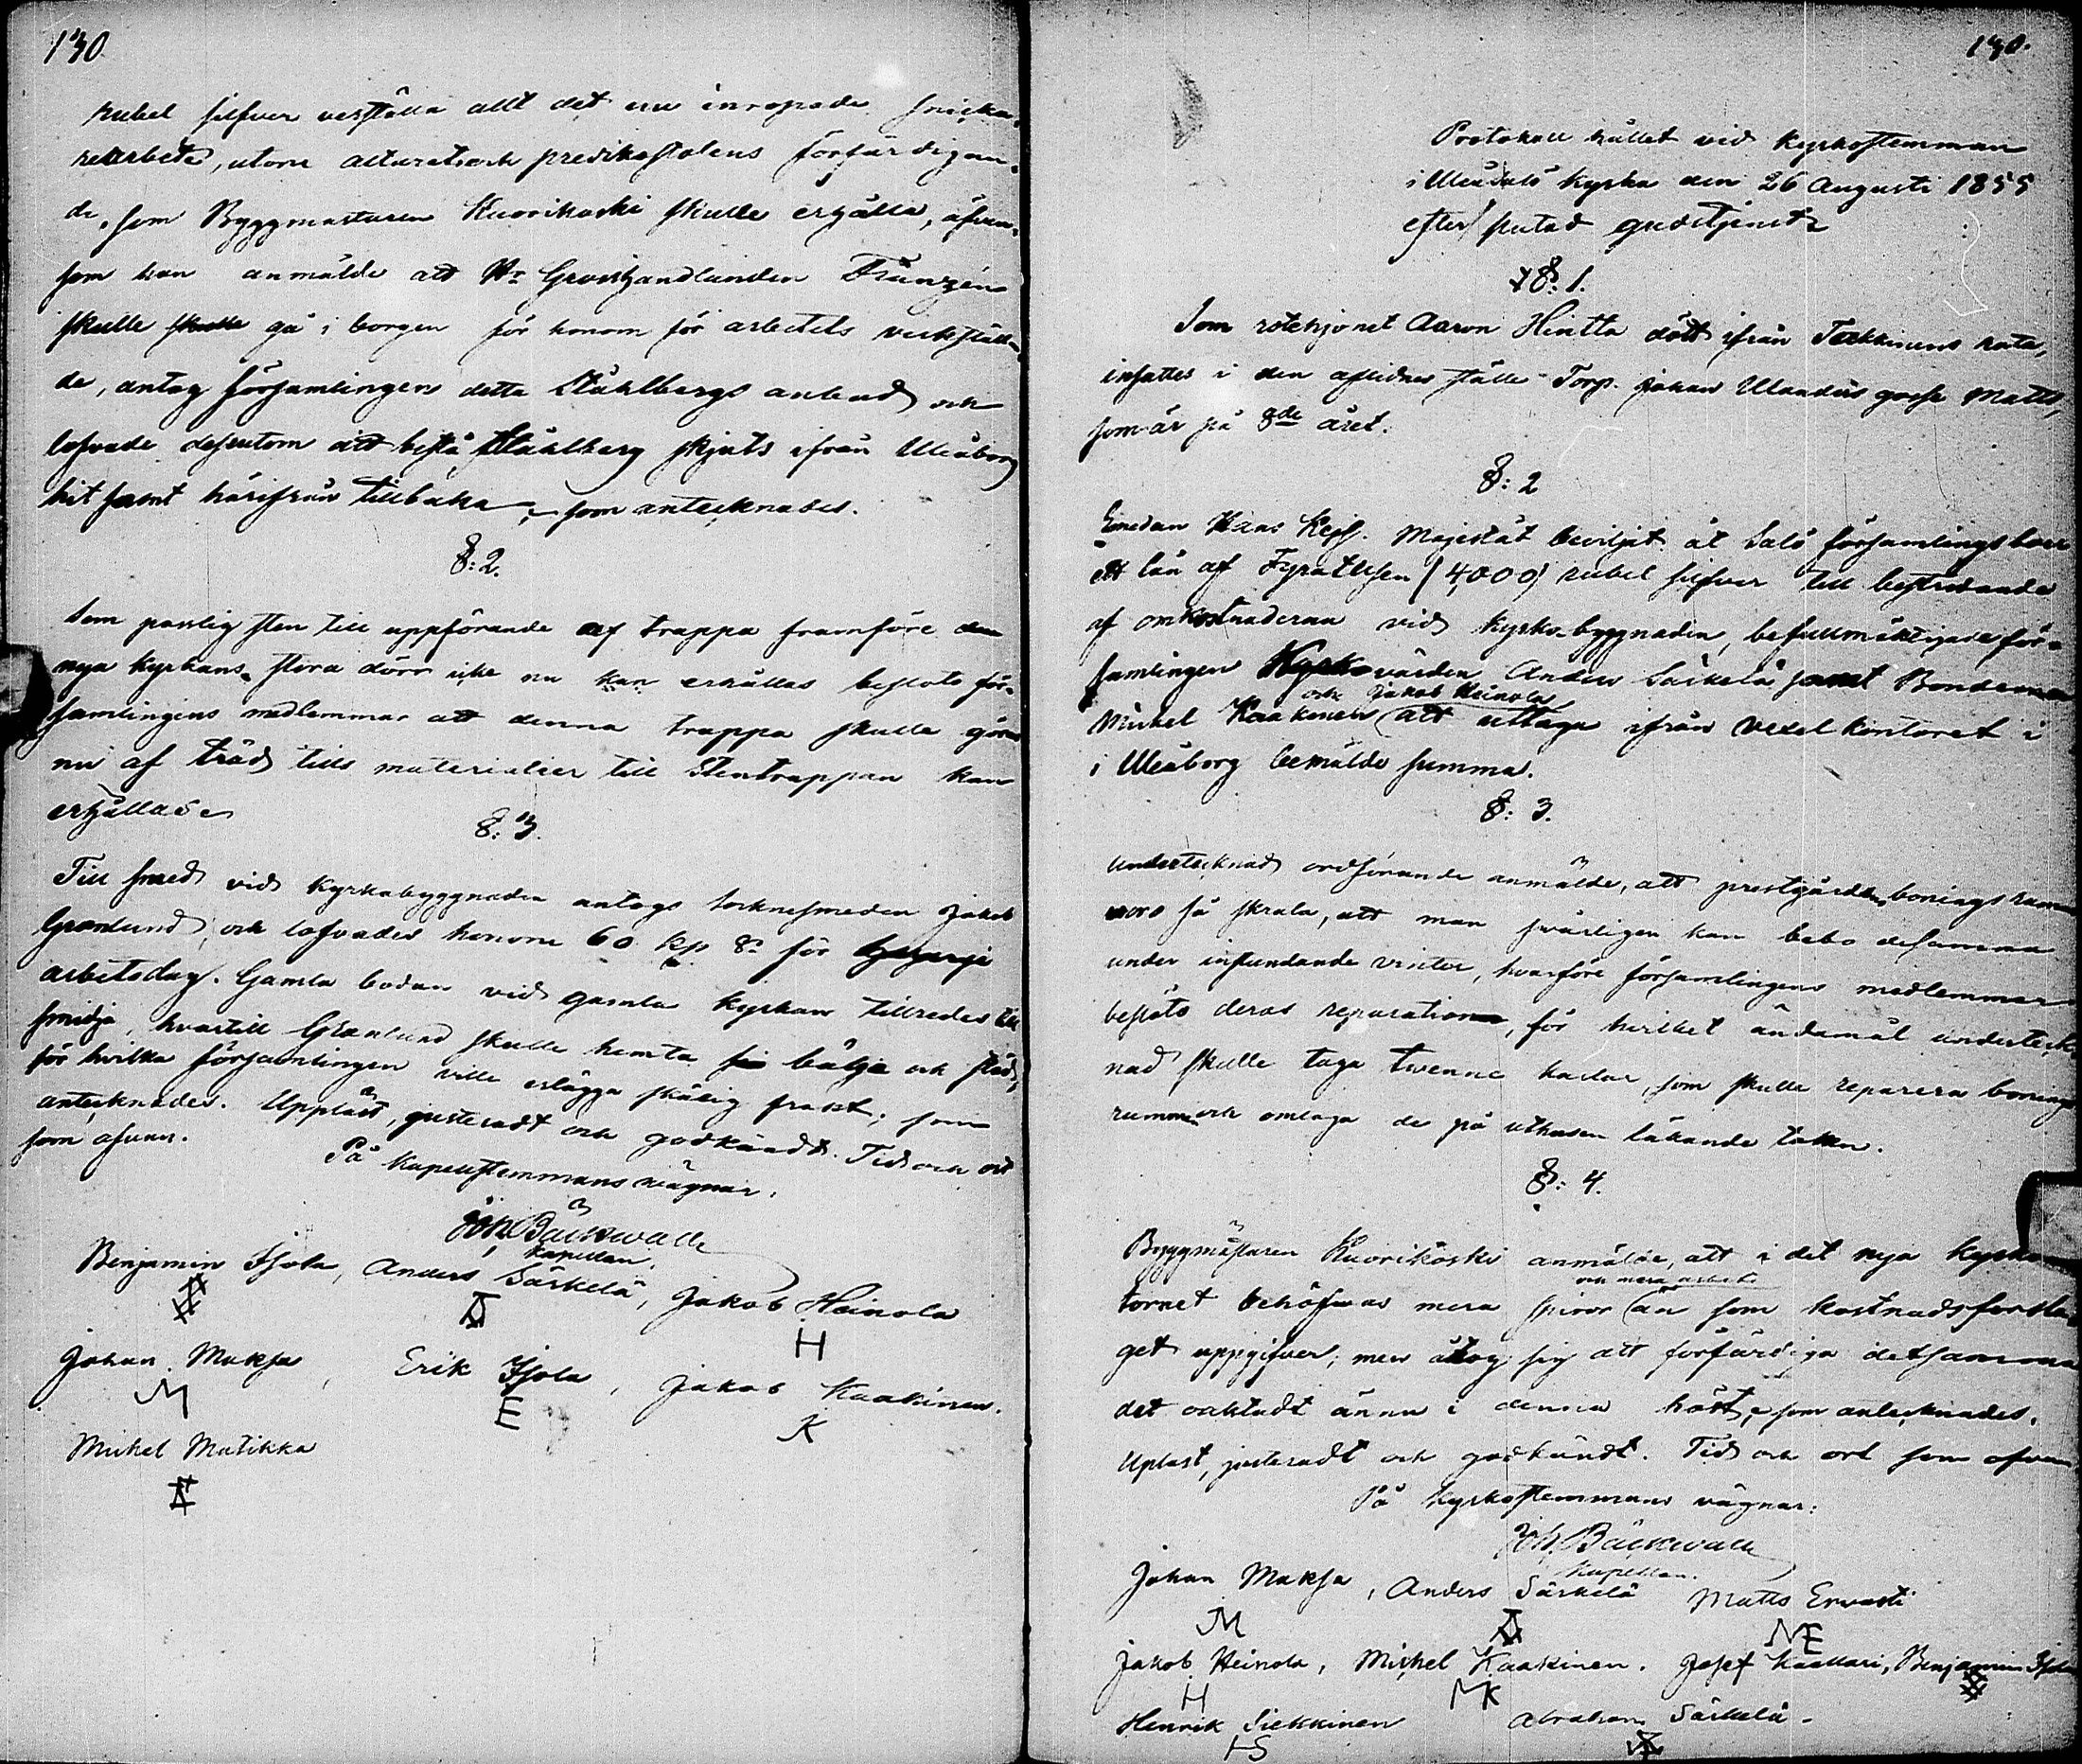 130.
rubel silfver verställa allt det nu inropade snicka-
rearbete, utom altaret och predikostolens förfärdigan-
de, som Byggmästaren Kuorikoski skulle erhålla, äfven-
som han anmälde att Hr Grosshandlanden Franzén
skulle skulle gå i borgen för honom för arbetets verkstäl-
de, antog församlingen detta Ståhlbergs anbud och
lofvade dessutom att bestå Ståhlberg skjuts ifrån Uleåborg
hit samt härifrån tillbaka, som antecknades.
§: 2.
Som passlig sten till uppförande af trappa framföre den
nya kyrkans stora dörr icke nu kan erhållas beslöto för-
samlingens medlemmar att denna trappa skulle göras
nu af träd tills materialier till Stentrappan kan
erhållas
§: 3.
Till smed vid kyrkobyggnaden antogs socknesmeden Jakob
Grönlund, och lofvades honom 60 kop. Sr för
arbetsdag. Gamla boden vid gamla kyrkan tillredes till
smidja, hvartill Grönlund skulle hemta bälje och städ,
för hvilka församlingen ville erlägga skälig frakt; som
antecknades. Uppläst, justeradt och godkändt. Tid och ort
som ofvan.
På kapellstemmans vägnar:
Joh. Bäckwall
Kapellan.
Benjamin Isola, Anders Särkelä, Jakob Heinola
H
Johan Maksa, Erik Isola, Jakob Kaakinen.
M E K
Mickel Matikka
130.
Protokoll hållet vid kyrkostemman
i Uleåsalo kyrka den 26 Augusti 1855
efter slutad gudstjenst
§: 1.
Som rotehjonet Aaron Hintta dött ifrån Tokkinens rote,
insattes i den aflidnes ställe Torp. Johan Ulanders gosse Matts,
som är på 8de året.
§: 2
Emedan Hans Kejs. Majestät beviljat åt Salo församlings boer
ett lån af Fyratusen (4,000) rubel silfver till bestridande
af omkostnaderna vid kyrko-byggnaden, befullmäktigade för-
samlingen Kyrkovärden Anders Särkelä samt Bondeman
och Jakob Heinola
Mickel Kaakinen att uttaga ifrån Vexel kontoret i
i Uleåborg bemälde summa.
§: 3.
Undertecknad ordförande anmälde, att prestgårdens bonings rummen
voro så skrala, att man svårligen kan bebo desamma
under instundande vinter, hvarföre församlingens medlemmar
beslöto deras reparation, för hvilket ändamål underteck-
nad skulle taga twenne karlar, som skulle reparera bonings
rummen och omlaga de på uthusen läkande taken.
§: 4.
Byggmästaren Kuorikoski anmälde, att i det nya kyrko
och mera arbete
tornet behöfvas mera spiror än som kostnadsförsla-
get uppgifver; men åtog sig att förfärdiga detsamma
det oaktadt ännu i denna höst, som antecknades.
Uplast, justeradt och godkändt. Tid och ort som ofvan
På kyrkostemmans vägnar:
Joh. Bäckwall
Kapellan.
Johan Maksa, Anders Särkelä Matts Ervasti
M ME
Jakob Heinola, Mickel Kaakinen. Josef Kaattari, Benjamin Isola
H MK
Henrik Siekkinen Abraham Särkelä.
HS